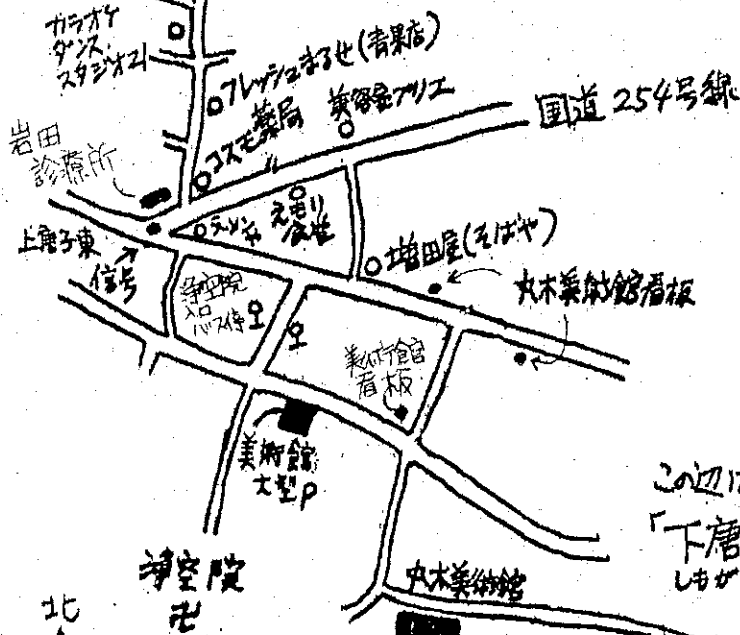 カラオケ
ダンス
スタジオ21
フレッシュまるせ(青果店)
コスモ薬局
美容室プリエ
国道254号線
岩田
診療所
ラーメンや
えもり
上唐子東
信号
増田屋(そばや)
浄空院
入口
バス停
丸木美術館看板
美術館
看板
美術館
大型P
この辺は
「下唐
しもが
浄空院
卍
丸木美術館
北